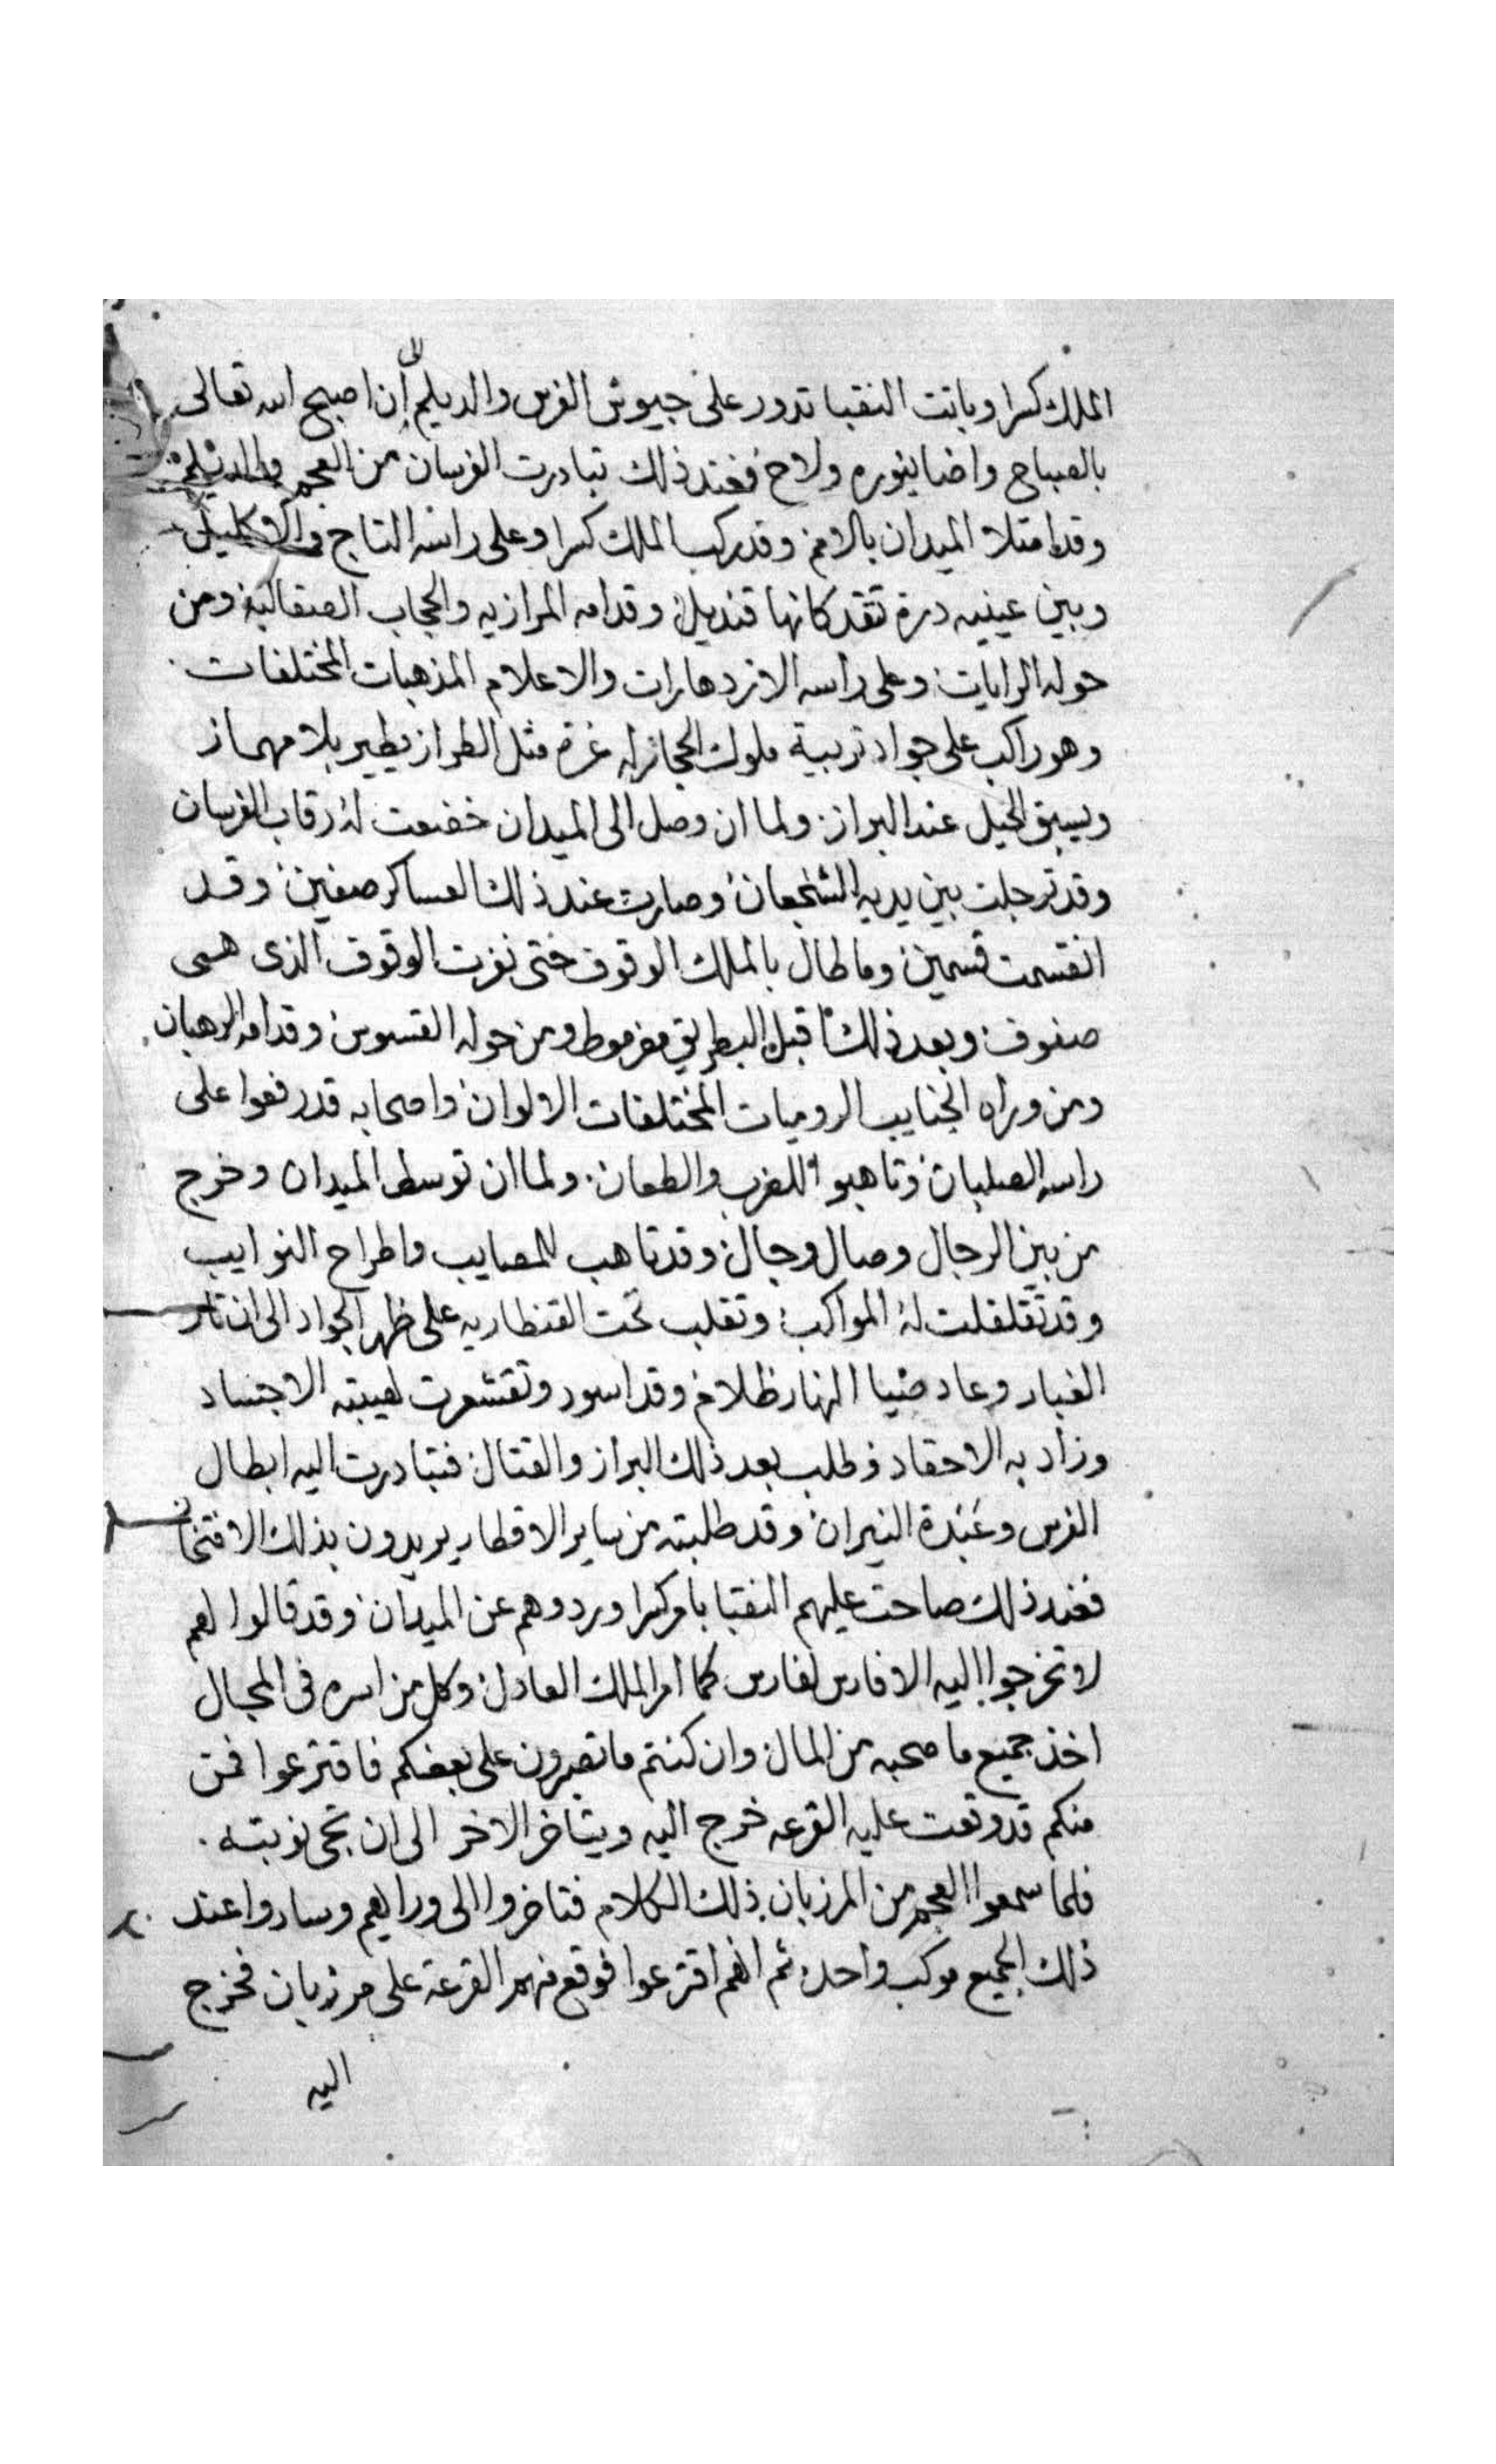 الملك كسرا وباتت النقبا تدور على جيوش الفرس والديلم الى ان اصبح الله تعالى
بالصباح واضا بنوره ولاح فعند ذلك تبادرت الفرسان من العجم والديلم
وقد امتلا الميدان بالامم وقد ركب الملك كسرا وعلى راسه التاج والاكليل
وبين عينيه درة تقد كانها قنديل وقدامه المرازبه والحجاب الصقالبة ومن
حوله الرايات وعلى راسه الازدهارات والاعلام المذهبات المختلفات
وهو راكب على جواد تربية ملوك الحجاز له غرة مثل الطراز يطير بلا مهماز
ويسبق الخيل عند البراز ولما ان وصل الى الميدان خضعت له رقاب الفرسان
وقد ترجلت بين يديه الشجعان وصارت عند ذلك العساكر صفين وقد
انقسمت قسمين وما طال بالملك الوقوف حتى الوقوف الذى هى
صفوف وبعد ذلك اقبل البطريق ومن حوله القسوس وقدامه الرهبان
ومن وراه الجنايب الروميات المختلفات الالوان واصحابه قد رفعوا على
راسه الصلبان وتاهبو للضرب والطعان ولما ان توسط الميدان وخرج
من بين الرجال وصال وجال وقد تاهب للمصايب واطراح النوايب
وقد تقلقلت له المواكب وتقلب تحت القنطاريه على ظهر الجواد الى ان ثار
الغبار وعاد ضيا النهار ظلام وقد اسود وتقشعرت لهيبته الاجساد
وزاد به الاحقاد وطلب بعد ذلك البراز والقتال فتبادرت اليه ابطال
الفرس وعَبَدة النيران وقد طلبته من ساير الاقطار يريدون بذلك الافتخار
فعند ذلك صاحت عليهم النقبا بامر كسرا وردوهم عن الميدان وقد قالوا لهم
لا تخرجوا اليه الا فارس لفارس كما امر الملك العادل وكل من اسره فى المجال
اخذ جميع ما صحبه من المال وان كنتم ما تصبرون على بعضكم فاقترعوا فمن
منكم قد وقعت عليه القرعه خرج اليه ويتاخر الاخر الى ان تجى نوبته
فلما سمعوا العجم من المرزبان ذلك الكلام فتاخروا الى وراهم وساروا عند
ذلك الجميع موكب واحد ثم انهم اقترعوا فوقع منهم القرعة على مرزبان فخرج
اليه